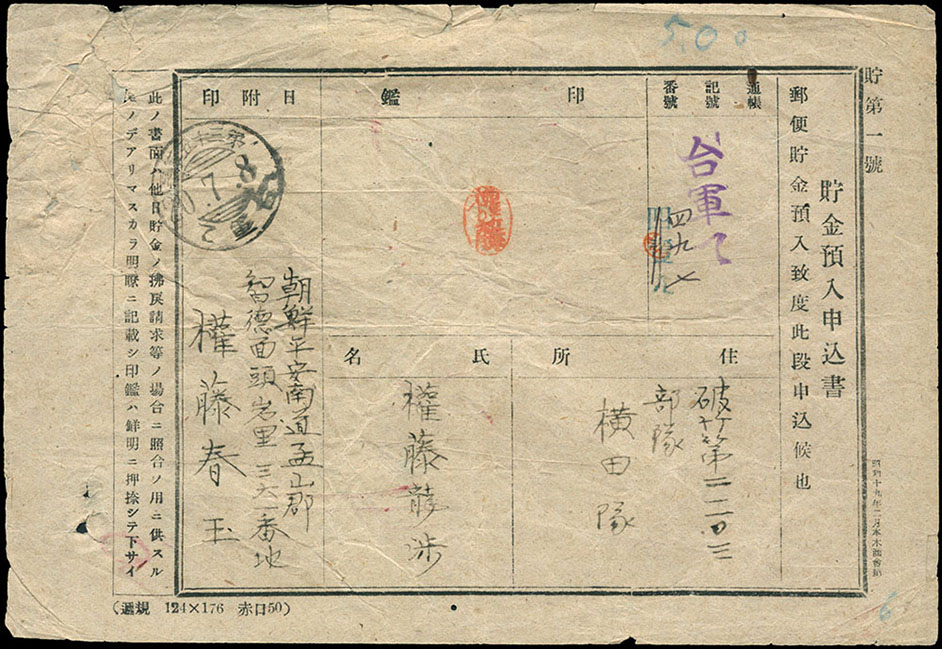 5.00
貯第一號
貯金預入申込書
郵便貯金預入致度此段申込候也
通帳
記號
番號
台軍て
四九
印鑑
日附印
20.7.8
住所
破竹第二二〇三
部隊
横田隊
氏名
權藤龍渉
朝鮮平安南道孟山郡
智德面頭岩里三六一番地
權藤春玉
此ノ書面ハ他日貯金ノ拂戻請求等ノ場合ニ照合ノ用ニ供スル
モノデアリマスカラ明瞭ニ記載シ印鑑ハ鮮明ニ押捺シテ下サイ
(遞規 124×176 赤口50)
6